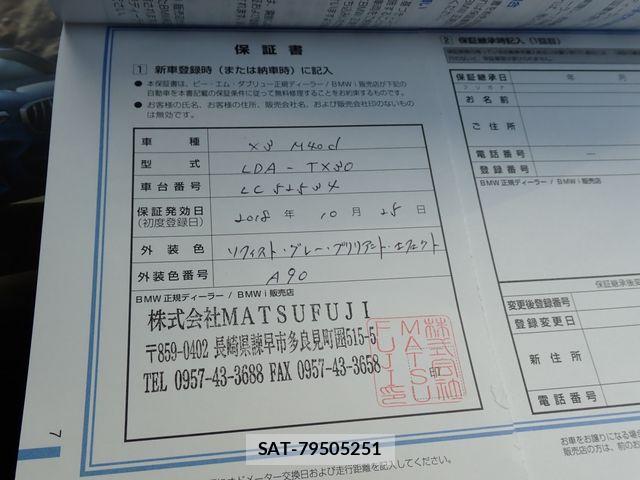 保証書
1 新車登録時（または納車時）に記入
● 本保証書は、ビー・エム・ダブリュー正規ディーラー / BMW i 販売店が下記の
自動車を本書記載の保証条件に従って無料修理することをお約束するものです。
● お客様の氏名、お客様の住所、販売会社名、および販売会社印のないもの
は無効です。
車種 X3 M40d
型式 LDA-TX30
車台番号
保証発効日 2018 年 10 月 25 日
(初度登録日)
外装色 ソフィスト・グレー・ブリリアント・エフェクト
外装色番号 A90
BMW正規ディーラー / BMW i 販売店
株式会社MATSUFUJI
〒859-0402 長崎県諫早市多良見町囲515-5
TEL 0957-43-3688 FAX 0957-43-3658 印
株式会社
MATSU
FUJI
7
2 保証継承時記入（1回目）
保証継承日 年 月
フリガナ
お名前
ご住所
電話番号
登録番号
BMW正規ディーラー / BMW i 販売店
保証継承後変
変更後登録番号
登録変更日
新住所
電話番号
お車をお譲りになる場合
販売店の方は、前のお
オドメーター交換日および走行距離を記入してください。
SAT-79505251